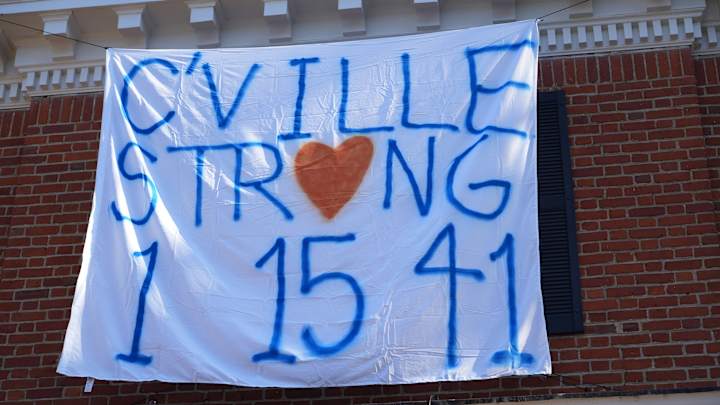 C'VILLE
STR❤NG
1 15 41